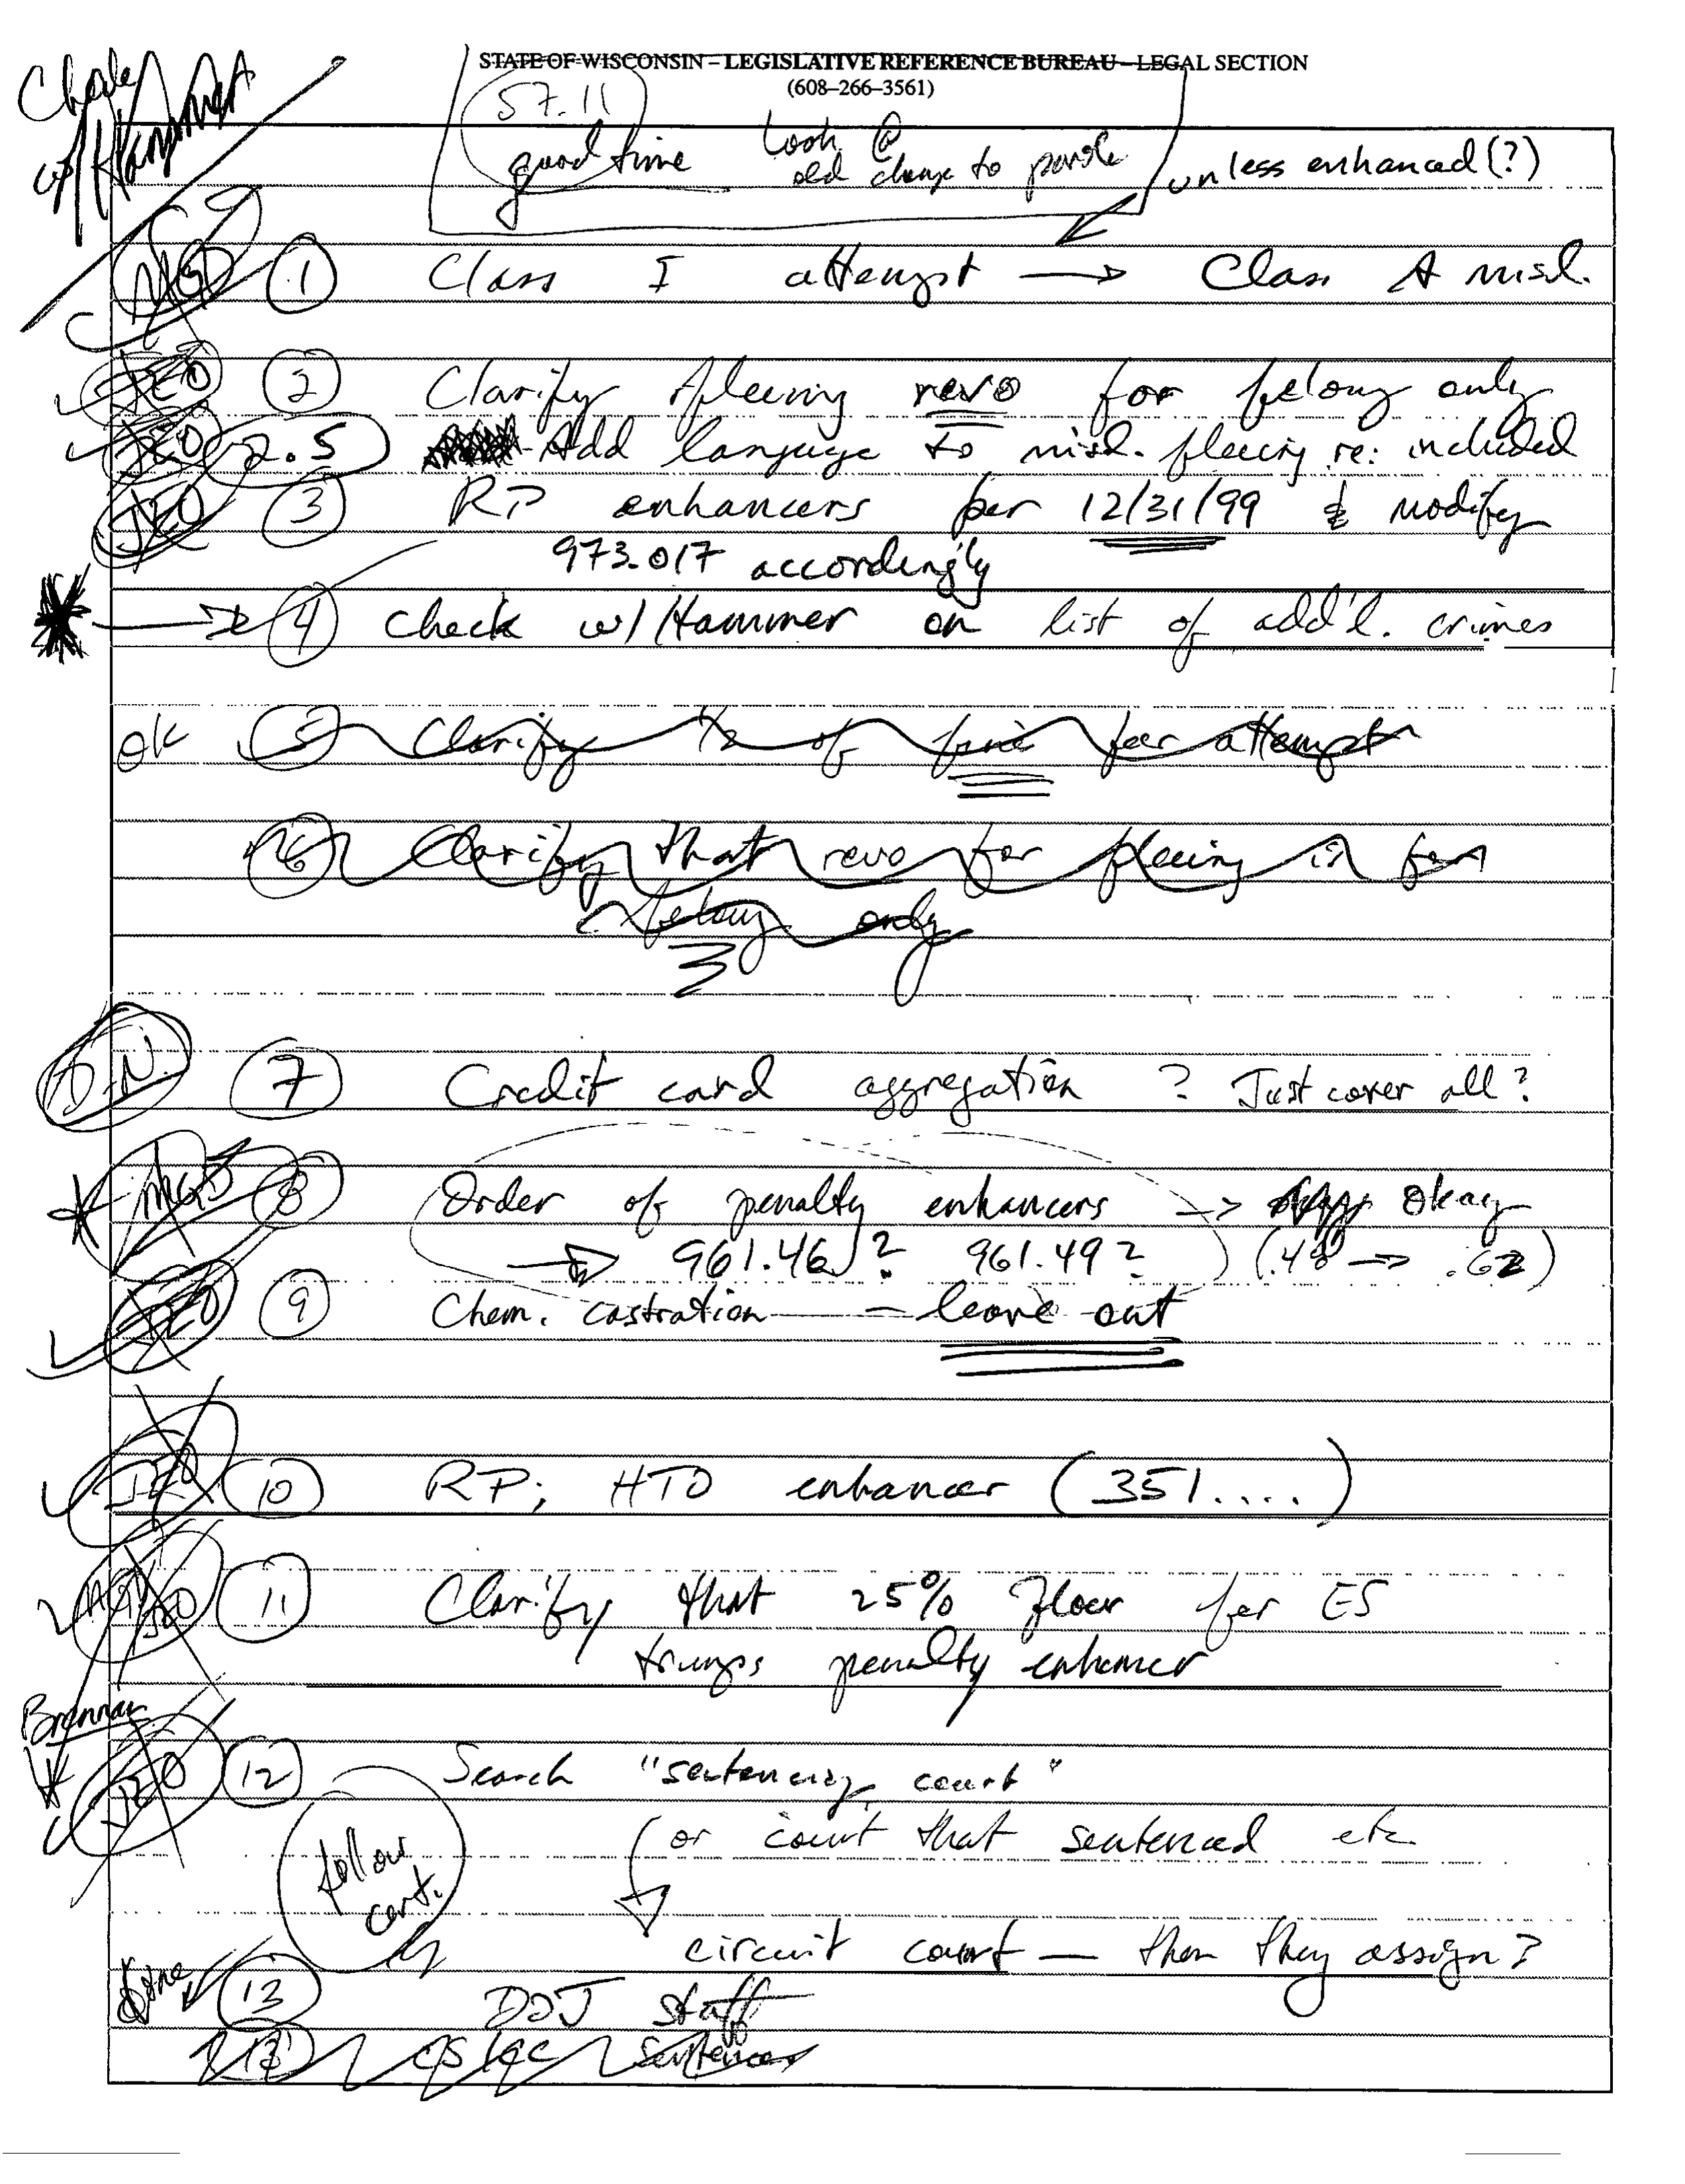 STATE OF WISCONSIN – LEGISLATIVE REFERENCE BUREAU – LEGAL SECTION
(608–266–3561)
Check
w/ Hammer
57.11
good time
Look @
old change to parole
unless enhanced (?)
MGD 1 Class I attempt → Class A misd.
JEO 2 Clarify fleeing revo for felony only
JEO 2.5 Add language to misd. fleeing re: included
JEO 3 RP enhancers per 12/31/99 & modify
973.017 accordingly
→ 4 check w/ Hammer on list of add'l. crimes
OK 5 Clarify 1/2 of fine for attempt
6 Clarify that revo for fleeing is for
felony only
D.N. 7 Credit card aggregation ? Just cover all?
* MGD 8 Order of penalty enhancers → Okay
→ 961.46? 961.49? (.48 → .62)
JEO 9 Chem. castration — leave out
JEO 10 RP; HTO enhancer (351....)
MGD JEO 11 Clarify that 25% floor for ES
trumps penalty enhancer
Brennan
* JEO 12 Search "sentencing court"
or court that sentenced etc
follow
cert.
circuit court — then they assign?
done 13 DOJ staff
13 sentences